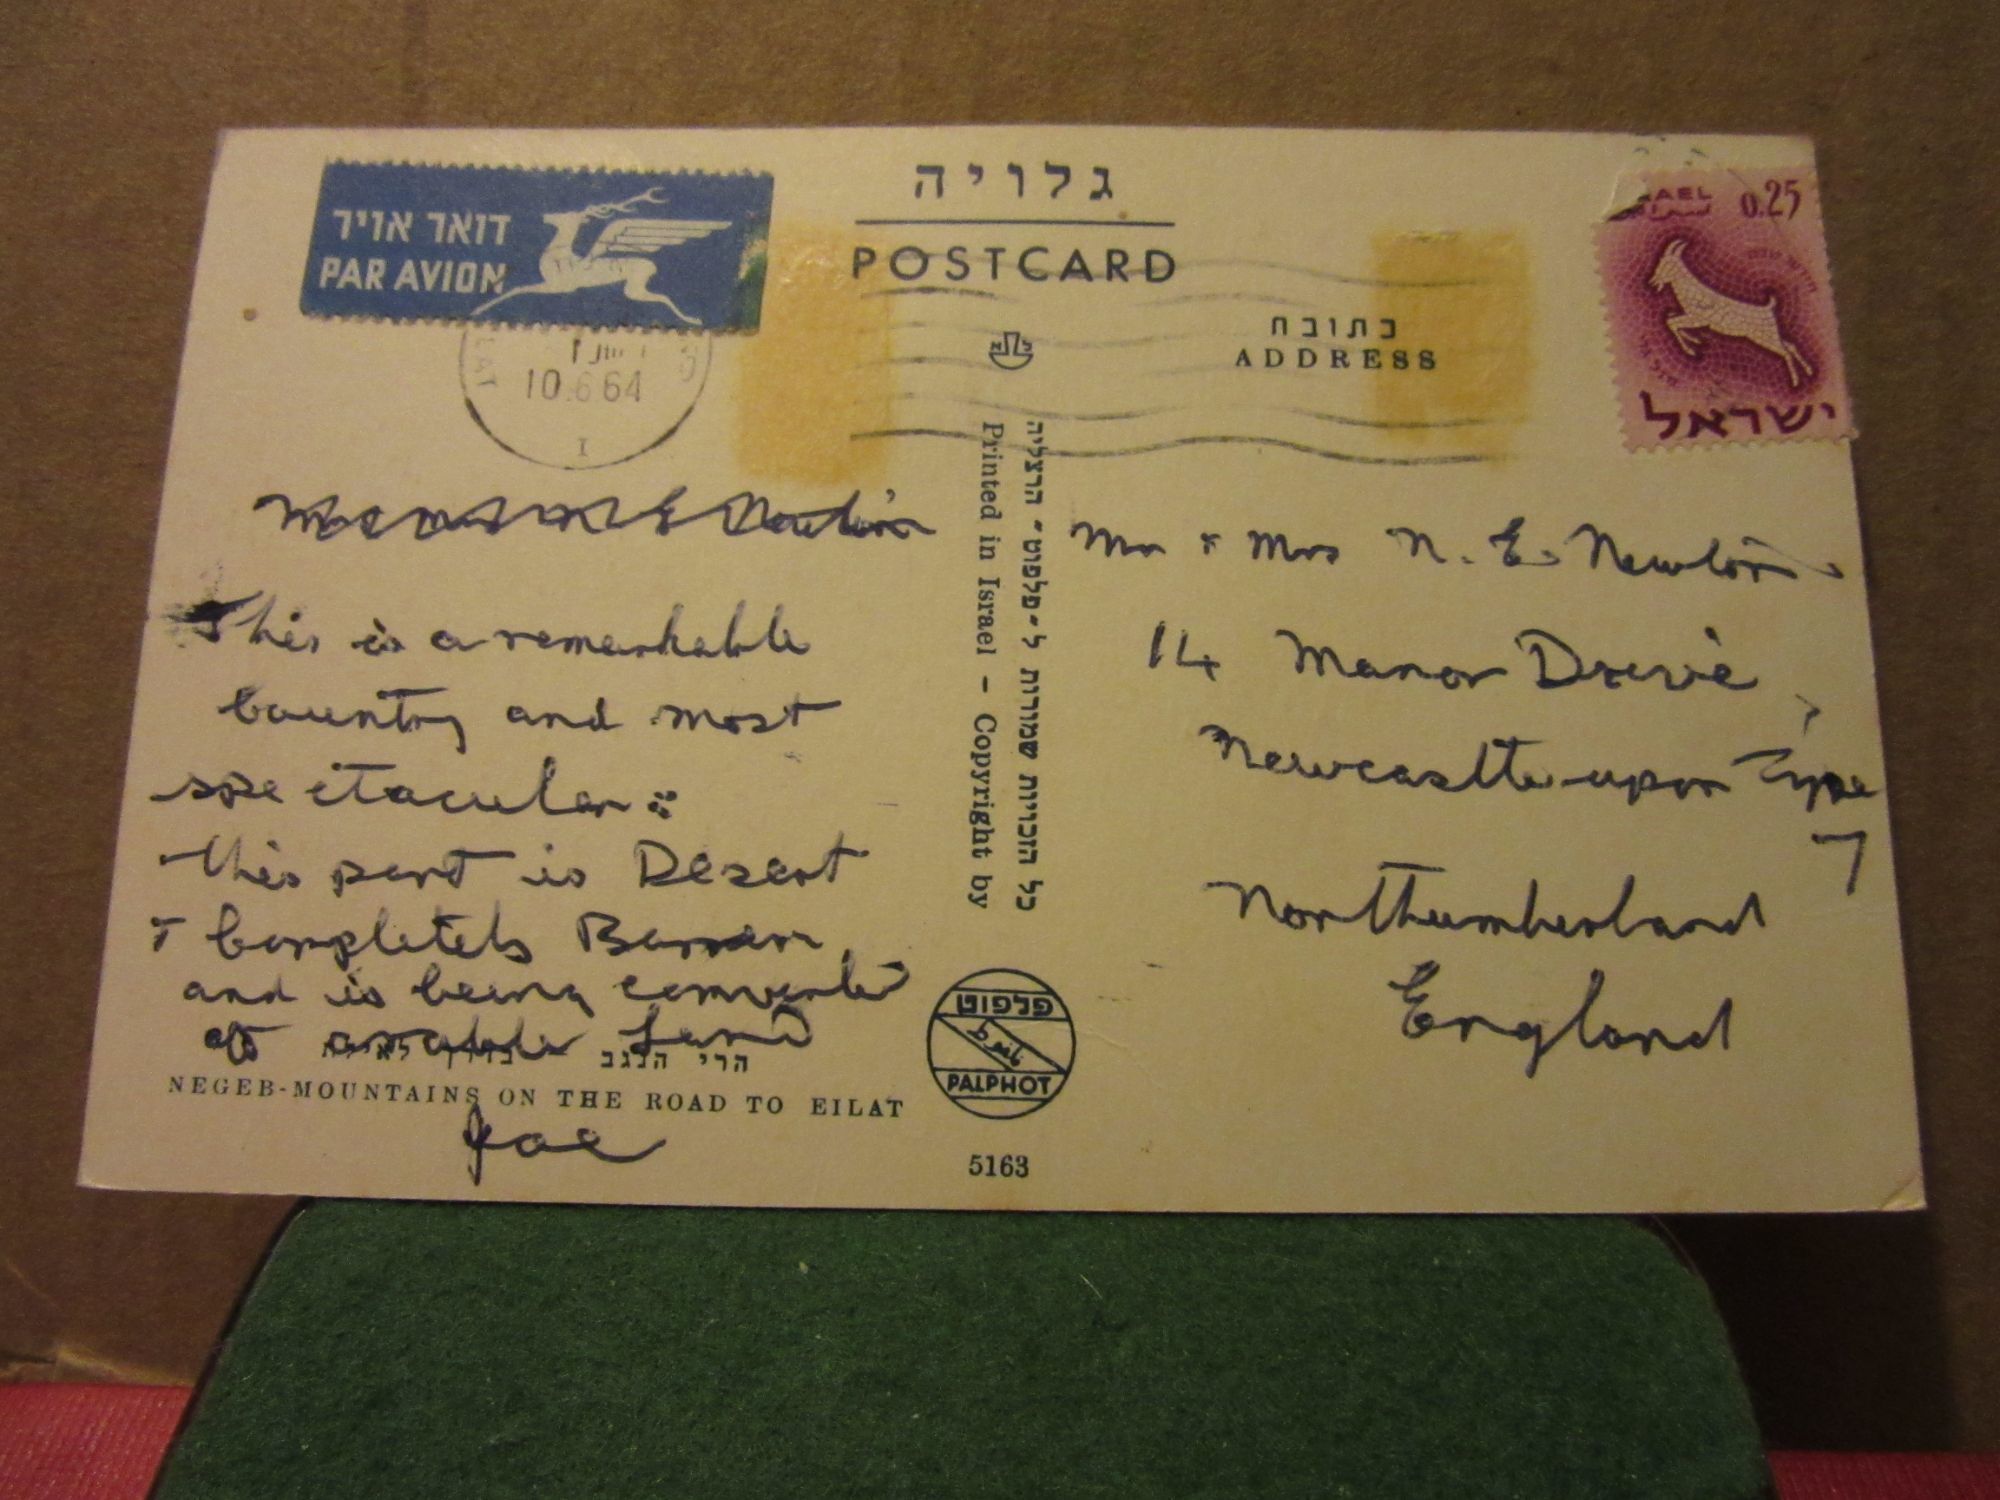 דואר אויר
PAR AVION
10.6.64
I
גלויה
POSTCARD
כתובת
ADDRESS
0.25
ישראל
This is a remarkable
country and most
spectacular :
this part is Desert
+ Completely Barren
and is being converted
to arable Land
הרי הנגב
NEGEB-MOUNTAINS ON THE ROAD TO EILAT
Joe
כל הזכויות שמורות ל-פלפוט- הרצליה
Printed in Israel - Copyright by
פלפוט
PALPHOT
5163
Mr + Mrs N. E. Newton
14 Manor Drive,
Newcastle upon Tyne
7
Northumberland
England